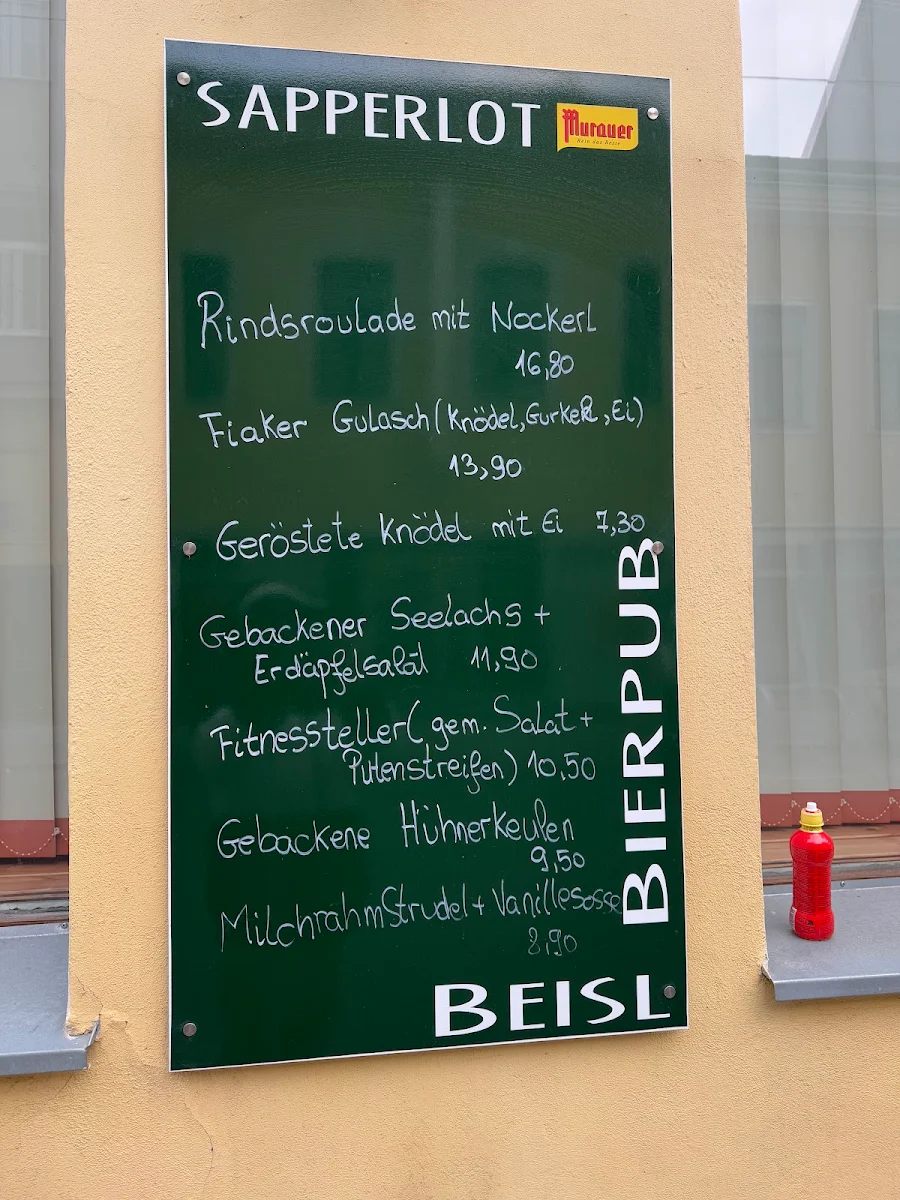 SAPPERLOT
Murauer
Rein das Beste
Rindsroulade mit Nockerl
16,80
Fiaker Gulasch (Knödel, Gurkerl, Ei)
13,90
Geröstete Knödel mit Ei 7,30
Gebackener Seelachs +
Erdäpfelsalat 11,90
Fitnessteller (gem. Salat +
Putenstreifen) 10,50
Gebackene Hühnerkeulen
9,50
MilchrahmStrudel + Vanillesosse
8,90
BIERPUB
BEISL